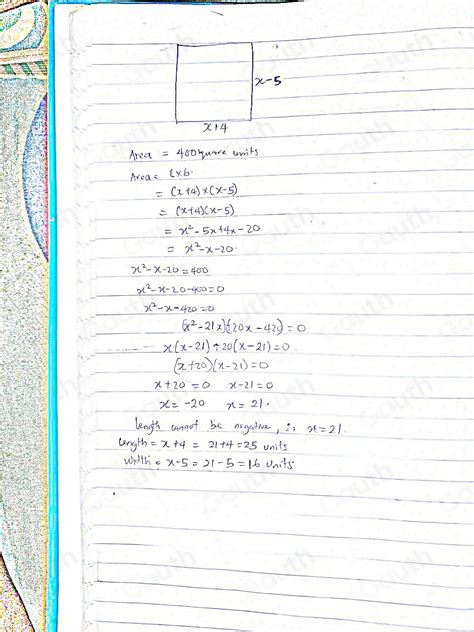 x-5
x+4
Area = 400square units
Area = l×b.
= (x+4)×(x-5)
= (x+4)(x-5)
= x²-5x+4x-20
= x²-x-20.
x²-x-20=400
x²-x-20-400=0
x²-x-420=0
(x²-21x)(20x-420)=0
x(x-21)+20(x-21)=0.
(x+20)(x-21)=0
x+20=0 x-21=0
x=-20 x=21.
length cannot be negative, is x=21.
Length = x+4 = 21+4=25 units
Width = x-5 = 21-5=16 units